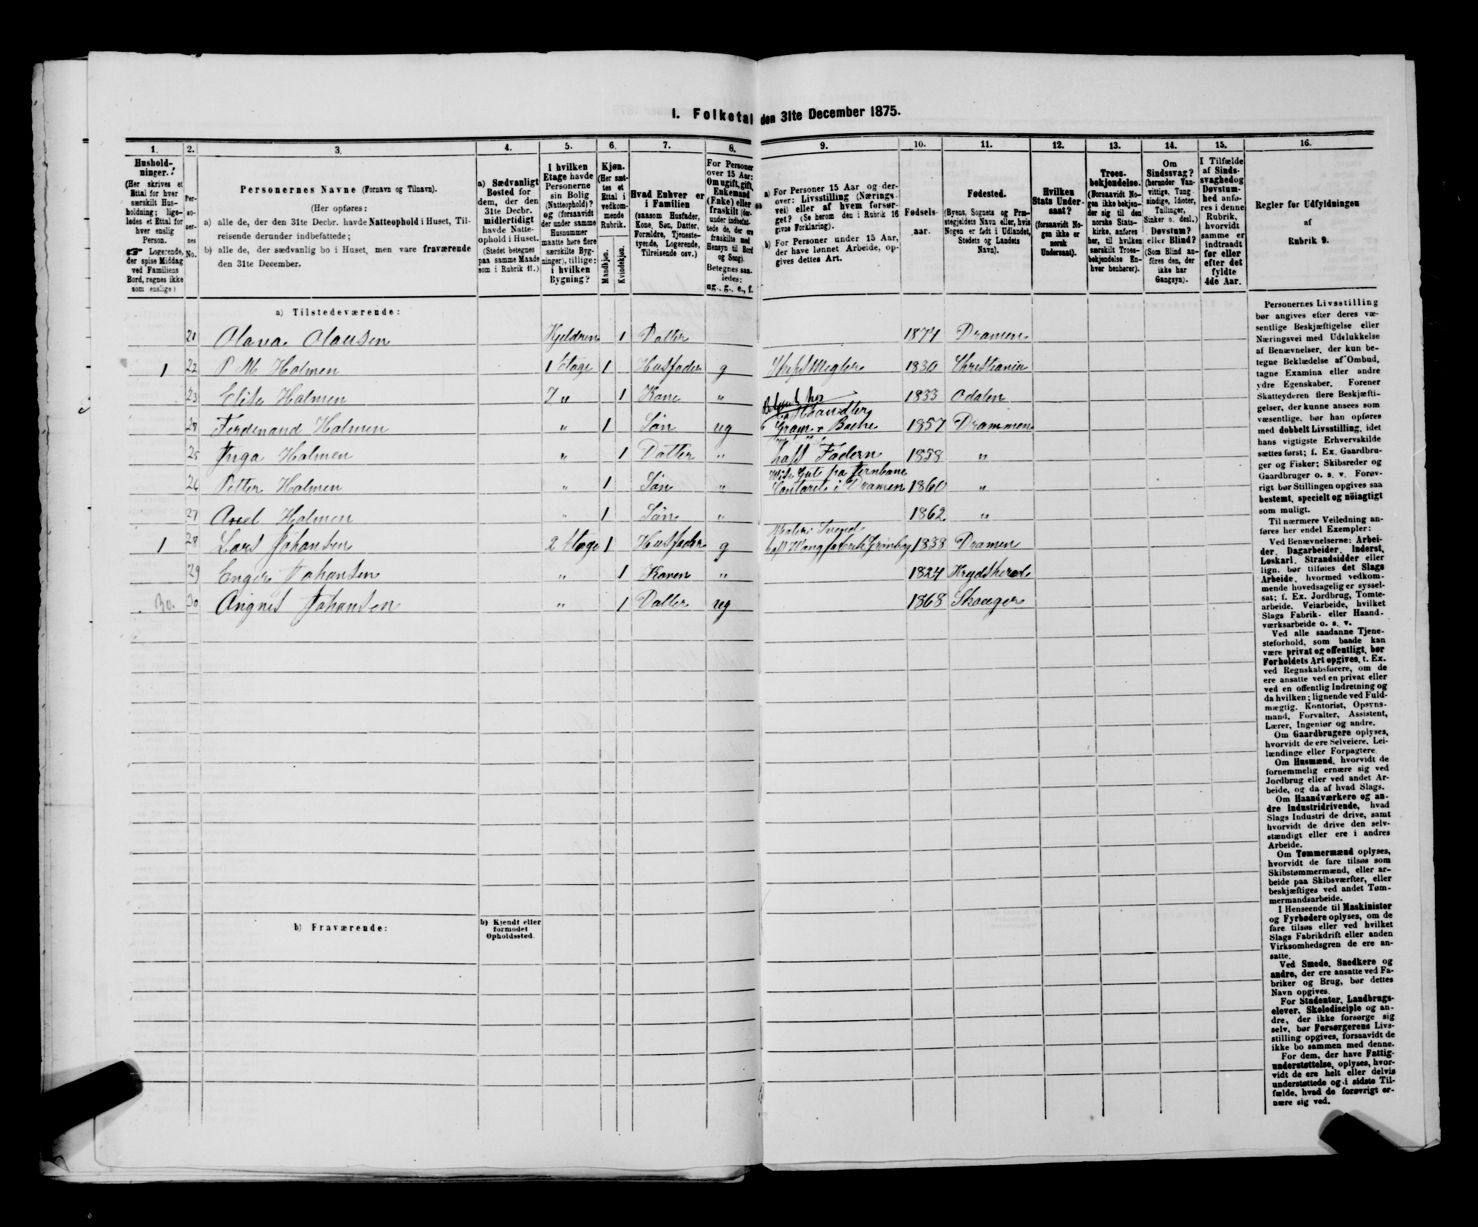 I. Folketal den 31te December 1875.
1.
Hushold-
ninger.
(Her skrives et
Ettal for hver
særskilt Hus-
holdning; lige-
ledes et Ettal for
hver enslig
Person.
☞ Logerende,
der spise Middag
ved Familiens
Bord, regnes ikke
som enslige)
2.
Per-
so-
ner-
nes
No.
3.
Personernes Navne (Fornavn og Tilnavn).
(Her opføres:
a) alle de, der den 31te Decbr. havde Natteophold i Huset, Til-
reisende derunder indbefattede;
b) alle de, der sædvanlig bo i Huset, men vare fraværende
den 31te December.
4.
a) Sædvanligt
Bosted for
dem, der den
31te Decbr.
midlertidigt
havde Natte-
ophold i Huset.
(Stedet betegnes
paa samme Maade
som i Rubrik 11.)
5.
I hvilken
Etage havde
Personerne
sin Bolig
(Natteophold)?
og (forsaavidt
der under samme
Husnummer
maatte høre flere
særskilte Byg-
ninger), tillige:
i hvilken
Bygning?
6.
Kjøn.
(Her sæt-
tes et
Ettal i
vedkom-
mende
Rubrik.
Mandkjøn.
Kvindekjøn.
7.
Hvad Enhver er
i Familien
(saasom Husfader,
Kone, Søn, Datter,
Forældre, Tjeneste-
tyende, Logerende,
Tilreisende osv.)
8.
For Personer
over 15 Aar:
Om ugift, gift,
Enkemand
(Enke) eller
fraskilt (der-
under indbefat-
tede de, der ere
fraskilte med
Hensyn til Bord
og Seng).
Betegnes saa-
ledes:
ug., g., e., f.
9.
a) For Personer 15 Aar og der-
over: Livsstilling (Nærings-
vei) eller af hvem forsør-
get? (Se herom den i Rubrik 16
givne Forklaring).
b) For Personer under 15 Aar,
der have lønnet Arbeide, op-
gives dettes Art.
10.
Fødsels-
aar.
11.
Fødested.
(Byens, Sognets og Præ-
stegjeldets Navn eller, hvis
Nogen er født i Udlandet,
Stedets og Landets
Navn).
12.
Hvilken
Stats Under-
saat?
(forsaavidt No-
gen ikke er
norsk
Undersaat).
13.
Troes-
bekjendelse.
(Forsaavidt No-
gen ikke bekjen-
der sig til den
norske Stats-
kirke, anføres
her, til hvilken
særskilt Troes-
bekjendelse En-
hver henhører).
14.
Om
Sindssvag?
(herunder Van-
vittige, Tung-
sindige, Idioter,
Tullinger,
Sinker o. desl.)
Døvstum?
eller Blind?
(Som Blind an-
føres den, der
ikke har
Gangsyn).
15.
I Tilfælde
af Sinds-
svaghed og
Døvstum-
hed anfø-
res i denne
Rubrik,
hvorvidt
samme er
indtraadt
før eller
efter det
fyldte
4de Aar.
16.
Regler for Udfyldningen
af
Rubrik 9.
a) Tilstedeværende:
21 Olava Olausen Kjeldren 1 Datter 1874 Dramen
1 22 P M Holmen 1 Etage 1 Husfader g 1830 Christiania
23 Elise Holmen 1 Kone „ 1833 Odalen
24 Ferdinand Holmen „ 1 Søn ug 1857 Drammen
25 Inga Holmen „ 1 Datter „ hoss Faderen 1858 „
26 Petter Holmen „ 1 Søn „ i Dramen 1860 „
27 Axel Holmen „ 1 Søn „ 1862 „
1 28 Lars Johansen 2 Etage 1 Husfader g 1838 Dramen
29 Enger Johansen „ 1 Konen „ 1824 Krydsherred
30. 30 Angnes Johansen „ 1 Datter ug 1868 Skouger
b) Fraværende:
b) Kjendt eller
formodet
Opholdssted.
Personernes Livsstilling
bør angives efter deres væ-
sentlige Beskjæftigelse eller
Næringsvei med Udelukkelse
af Benævnelser, der kun be-
tegne Beklædelse af Ombud,
tagne Examina eller andre
ydre Egenskaber. Forener
Skatteyderen flere Beskjæfti-
gelser, der kunne ansees som
væsentlige, bør han opføres
med dobbelt Livsstilling, idet
hans vigtigste Erhvervskilde
sættes først; f. Ex. Gaardbru-
ger og Fisker; Skibsreder og
Gaardbruger o. s. v. Forøv-
rigt bør Stillingen opgives saa
bestemt, specielt og nöiagtigt
som muligt.
Til nærmere Veiledning an-
føres her endel Exempler:
Ved Benævnelserne: Arbei-
der, Dagarbeider, Inderst,
Løskarl, Strandsidder eller
lign. bør tilføies det Slags
Arbeide, hvormed vedkom-
mende hovedsagelig er syssel-
sat; f. Ex. Jordbrug, Tomte-
arbeide, Veiarbeide, hvilket
Slags Fabrik- eller Haand-
værksarbeide o. s. v.
Ved alle saadanne Tjene-
steforhold, som baade kan
være privat og offentligt, bør
Forholdets Art opgives, f. Ex.
ved Regnskabsførere, om de
ere ansatte ved en privat eller
ved en offentlig Indretning og
da hvilken; lignende ved Fuld-
mægtig, Kontorist, Opsyns-
mand, Forvalter, Assistent,
Lærer, Ingeniør og andre.
Om Gaardbrugere oplyses,
hvorvidt de ere Selveiere, Lei-
lændinge eller Forpagtere.
Om Husmænd, hvorvidt de
fornemmelig ernære sig ved
Jordbrug eller ved andet Ar-
beide, og da af hvad Slags.
Om Haandværkere og an-
dre Industridrivende, hvad
Slags Industri de drive, samt
hvorvidt de drive den selv-
stændigt eller ere i andres
Arbeide.
Om Tømmermænd oplyses,
hvorvidt de fare tilsøs som
Skibstømmermænd, eller ar-
beide paa Skibsværfter, eller
beskjæftiges ved andet Tøm-
mermandsarbeide.
I Henseende til Maskinister
og Fyrbødere oplyses, om de
fare tilsøs eller ved hvilket
Slags Fabrikdrift eller anden
Virksomhedsgren de ere an-
satte.
Ved Smede, Snedkere og
andre, der ere ansatte ved Fa-
briker og Brug, bør dettes
Navn opgives.
For Studenter, Landbrugs-
elever, Skoledisciple og an-
dre, der ikke forsørge sig
selv, bør Forsørgerens Livs-
stilling opgives, forsaavidt de
ikke bo sammen med denne.
For dem, der have Fattig-
understøttelse, oplyses, hvor-
vidt de ere helt eller delvis
understøttede og i sidste Til-
fælde, hvad de forøvrigt er-
nære sig ved.